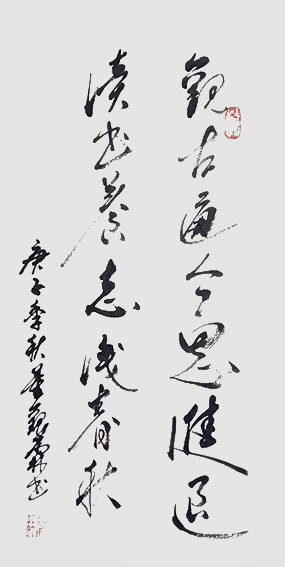 觀古通今思進退
讀書養志識春秋
庚子季秋書